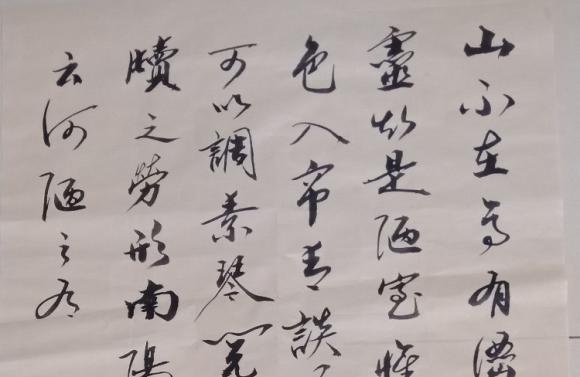 山不在高有僊
靈斯是陋室惟
色入帘青談
可以調素琴閱
牘之勞形南陽
云何陋之有